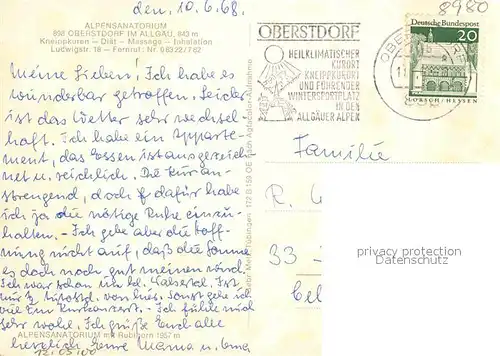 den, 10.6.68.
8980
ALPENSANATORIUM
898 OBERSTDORF IM ALLGÄU, 843 m
Kneippkuren – Diät – Massage – Inhalation
Ludwigstr. 18 – Fernruf: Nr. 08322/762
Meine Lieben! Ich habe es
wunderbar getroffen. Leider
ist das Wetter sehr wechsel-
haft. Ich habe ein Apparte-
ment, das Essen ist ausgezeich-
net u. reichlich. Die Kur an-
strengend, doch dafür habe
ich ja die nötige Ruhe einzu-
halten. – Ich gebe aber die Hoff-
nung nicht auf, daß die Sonne
es doch noch gut meinen wird.
Ich war schon im Ist
nur von hier. Sonst gehe ich
viel Kurkonzert. – Ich fühle mich
sehr wohl. Ich grüße Euch alle
herzlich Eure Mama u. Oma
ALPENSANATORIUM mit Rubihorn 1957 m
12.05.00
OBERSTDORF
HEILKLIMATISCHER
KURORT
KNEIPPKURORT
UND FÜHRENDER
WINTERSPORTPLATZ
IN DEN
ALLGÄUER ALPEN
Deutsche Bundespost
20
LORSCH/HESSEN
Familie
R.
33
Cel
privacy protection
Datenschutz